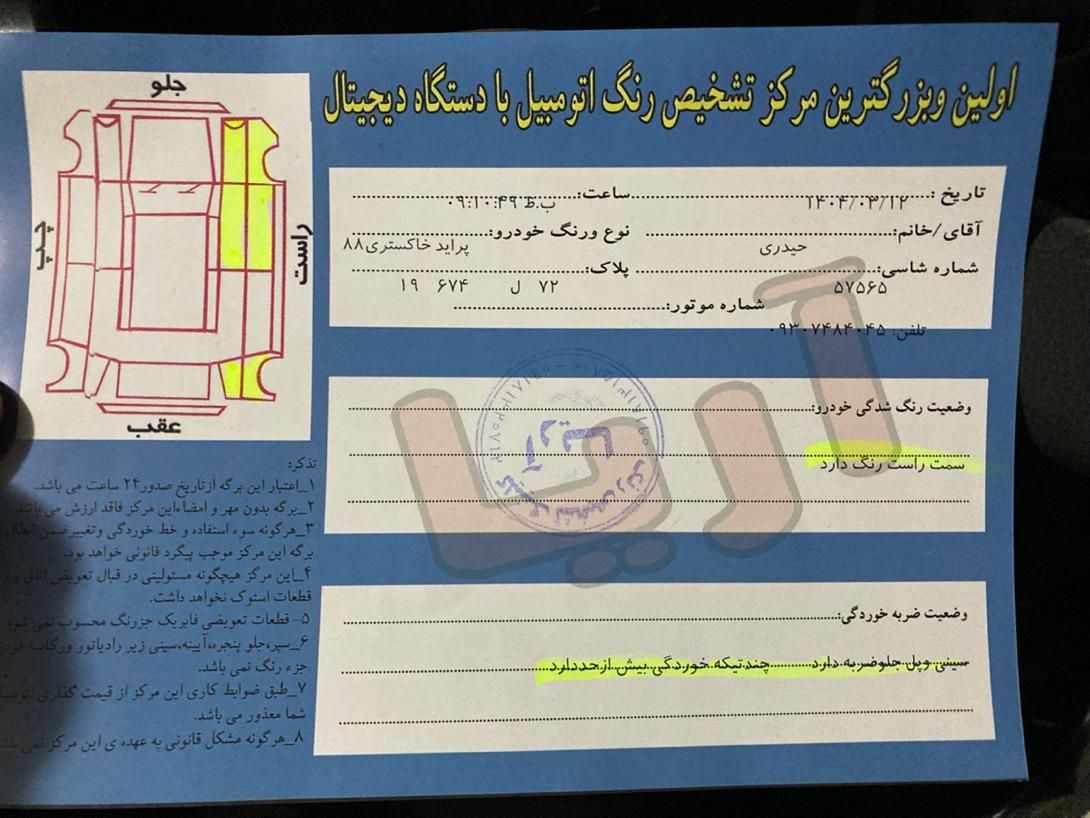 اولین وبزرگترین مرکز تشخیص رنگ اتومبیل با دستگاه دیجیتال
جلو
چپ
راست
عقب
تاریخ: ۱۴۰۴/۰۳/۱۲ ساعت: ۰۹:۱۰:۴۹ ب.ظ
آقای/خانم: حیدری نوع ورنگ خودرو: پراید خاکستری۸۸
شماره شاسی: ۵۷۵۶۵ پلاک: ۷۲ ل ۶۷۴ ۱۹
شماره موتور:
تلفن: ۰۹۳۰۷۴۸۴۰۴۵
آریا
وضعیت رنگ شدگی خودرو:
سمت راست رنگ دارد
وضعیت ضربه خوردگی:
سینی وپل جلوضربه دارد چندتیکه خوردگی بیش ازحددارد
تذکر:
۱_اعتبار این برگه ازتاریخ صدور۲۴ ساعت می باشد.
۲_برگه بدون مهر و امضاءاین مرکز فاقد ارزش می باشد
۳_هرگونه سوء استفاده و خط خوردگی وتغییرضمن ابطال
برگه این مرکز موجب پیگرد قانونی خواهد بود.
۴_این مرکز هیچگونه مسئولیتی در قبال تعویض اتاق و
قطعات استوک نخواهد داشت.
۵- قطعات تعویضی فابریک جزرنگ محسوب نمی شود
۶_سپر،جلو پنجره،آیینه،سینی زیر رادیاتور ورکاب
جزء رنگ نمی باشد.
۷_طبق ضوابط کاری این مرکز از قیمت گذاری
شما معذور می باشد.
۸_هرگونه مشکل قانونی به عهده ی این مرکز نمی